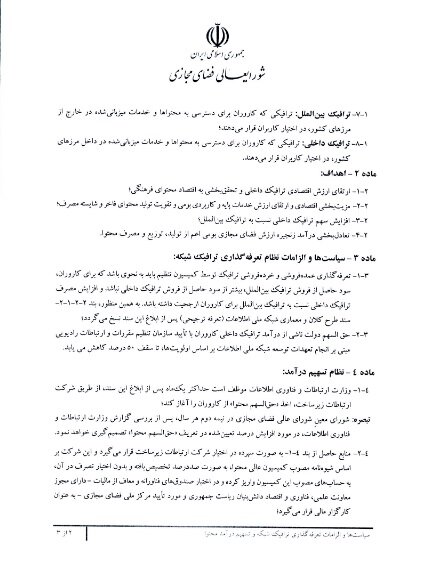 جمهوری اسلامی ایران
شورایعالی فضای مجازی
۱-۷- ترافیک بین‌الملل: ترافیکی که کاروران برای دسترسی به محتواها و خدمات میزبانی‌شده در خارج از
مرزهای کشور، در اختیار کاربران قرار می‌دهند؛
۱-۸- ترافیک داخلی: ترافیکی که کاروران برای دسترسی به محتواها و خدمات میزبانی‌شده در داخل مرزهای
کشور، در اختیار کاربران قرار می‌دهند.
ماده ۲ - اهداف:
۲-۱- ارتقای ارزش اقتصادی ترافیک داخلی و تحقق‌بخشی به اقتصاد محتوای فرهنگی؛
۲-۲- مزیت‌بخشی اقتصادی و ارتقای ارزش خدمات پایه و کاربردی بومی و تقویت تولید محتوای فاخر و شایسته مصرف؛
۲-۳- افزایش سهم ترافیک داخلی نسبت به ترافیک بین‌الملل؛
۲-۴- تعادل‌بخشی درآمد زنجیره ارزش فضای مجازی بومی اعم از تولید، توزیع و مصرف محتوا.
ماده ۳ - سیاست‌ها و الزامات نظام تعرفه‌گذاری ترافیک شبکه:
۳-۱- تعرفه‌گذاری عمده‌فروشی و خرده‌فروشی ترافیک توسط کمیسیون تنظیم باید به نحوی باشد که برای کاروران،
سود حاصل از فروش ترافیک بین‌الملل، بیشتر از سود حاصل از فروش ترافیک داخلی نباشد و افزایش مصرف
ترافیک داخلی نسبت به ترافیک بین‌الملل برای کاروران ارجحیت داشته باشد. به همین منظور، بند ۲-۲-۱-۲-
سند طرح کلان و معماری شبکه ملی اطلاعات (تعرفه ترجیحی) پس از ابلاغ این سند نسخ می‌گردد؛
۳-۲- حق السهم دولت ناشی از درآمد ترافیک داخلی کاروران با تأیید سازمان تنظیم مقررات و ارتباطات رادیویی
مبنی بر انجام تعهدات توسعه شبکه ملی اطلاعات بر اساس اولویت‌ها، تا سقف ۵۰ درصد کاهش می یابد.
ماده ۴ - نظام تسهیم درآمد:
۴-۱- وزارت ارتباطات و فناوری اطلاعات موظف است حداکثر یک‌ماه پس از ابلاغ این سند، از طریق شرکت
ارتباطات زیرساخت، اخذ «حق‌السهم محتوا» از کاروران را آغاز کند؛
تبصره: شورای معین شورای عالی فضای مجازی در نیمه دوم هر سال، پس از بررسی گزارش وزارت ارتباطات و
فناوری اطلاعات، در مورد افزایش درصد تعیین‌شده در تعریف «حق‌السهم محتوا» تصمیم‌گیری خواهد نمود.
۴-۲- منابع حاصل از بند ۴-۱- به صورت سپرده در اختیار شرکت ارتباطات زیرساخت قرار می‌گیرد و این شرکت بر
اساس شیوه‌نامه مصوب کمیسیون عالی محتوا، به صورت صددرصد تخصیص‌یافته و بدون اختیار تصرف در آن،
به حساب‌های مصوب این کمیسیون واریز کرده و در اختیار صندوق‌های فناورانه و معاف از مالیات - دارای مجوز
معاونت علمی، فناوری و اقتصاد دانش‌بنیان ریاست جمهوری و مورد تأیید مرکز ملی فضای مجازی - به عنوان
کارگزار مالی قرار می‌گیرد؛
سیاست‌ها و الزامات تعرفه‌گذاری ترافیک شبکه و تسهیم درآمد محتوا
۲ از ۳